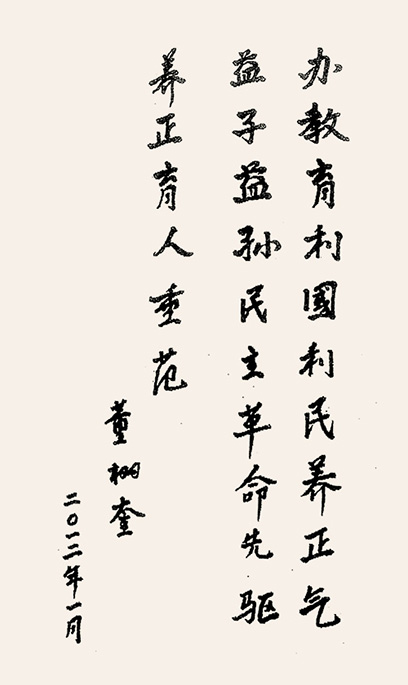 办教育利國利民养正气
益子益孙民主革命先驱
养正育人重范
董栩奎
二〇一二年一月